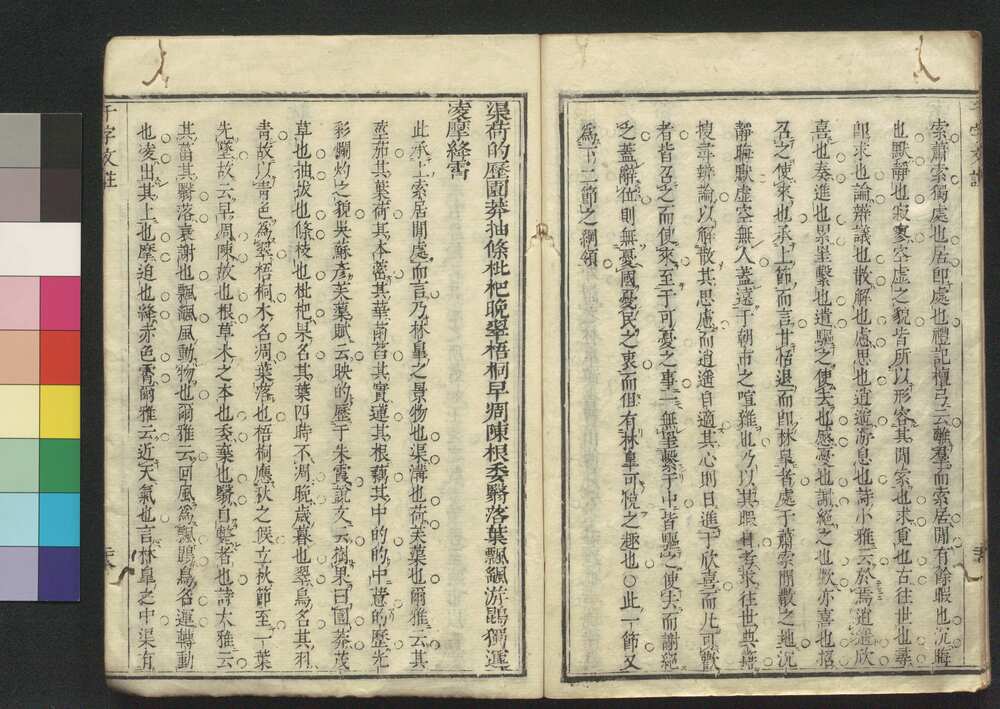 索蕭索獨處也居即處也禮記檀弓云離羣而索居閒有餘暇也沉晦
也默靜也寂寥空虛之貌皆所以形容其閒索也求覓也古往世也尋
即求也論辨議也散解也慮思也逍遙游息也詩小雅云於焉逍遙欣
喜也奏進也累罣繫也遣驅之使去也慼憂也謝絕之也歡亦喜也招
召之使來也承上節而言甘恬退而即林皋者處于蕭索閒散之地沉
靜晦默虛空無人蓋遠于朝市之喧雜也乃以其暇日考求往世典籍
搜尋辨論以解散其思慮而逍遙自適其心則日進于欣喜而凡可歡
者皆召之而使來至于可憂之事一無罣繫于中皆驅之使去而謝絕
之蓋辭位則無憂國憂民之衷而但有林皋可悅之趣也○此一節又
為下二節之綱領
渠荷的歷園莽抽條枇杷晚翠梧桐早凋陳根委翳落葉飄颻游鵾獨運
凌摩絳霄
此承上索居閒處而言乃林皋之景物也渠溝也荷芙蕖也爾雅云其
莖茄其葉荷其本蔤其華菡萏其實蓮其根藕其中的的中薏的歷光
彩爛灼之貌吳蘇彥芙蕖賦云映的歷于朱霞說文云樹果曰園莽茂
草也抽拔也條枝也枇杷果名其葉四時不凋晚歲暮也翠鳥名其羽
青故以青色為翠梧桐木名凋葉落也梧桐應秋之候立秋節至一葉
先墜故云早凋陳故也根草木之本也委棄也翳自斃者也詩大雅云
其菑其翳落衰謝也飄颻風動物也爾雅云回風為飄鵾鳥名運轉動
也凌出其上也摩迫也絳赤色霄爾雅云近天氣也言林皋之中渠有
千字文註